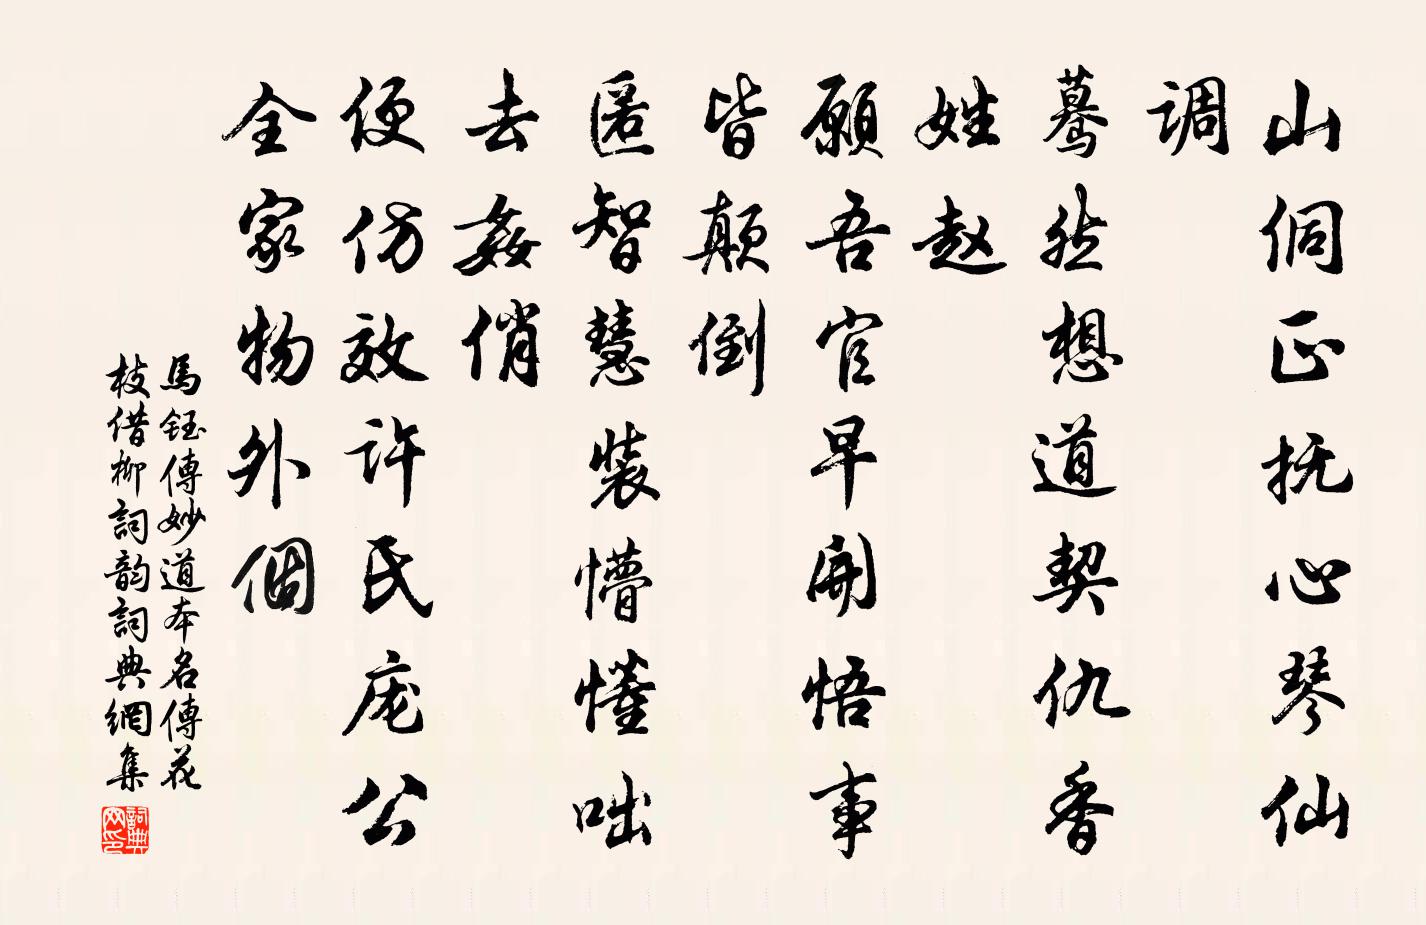 山侗正抚心琴仙
调
蓦然想道契仇香
姓赵
愿吾官早开悟事
皆颠倒
匿智慧装懵懂咄
去奸俏
便仿效许氏庞公
全家物外個
馬鈺傳妙道本名傳花
枝借柳詞韵詞典網集
詞典
网印